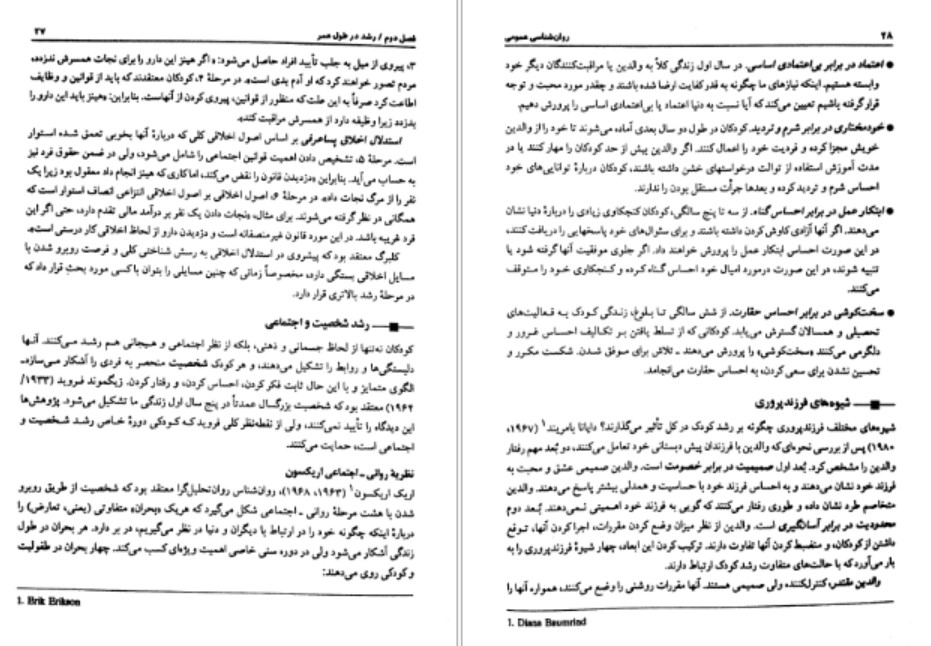 فصل دوم / رشد در طول عمر ۲۷
۳، پیروی از میل به جلب تأیید افراد حاصل می‌شود: «اگر هینز این دارو را برای نجات همسرش ندزدد،
مردم تصور خواهند کرد که او آدم بدی است». در مرحلهٔ ۴، کودکان معتقدند که باید از قوانین و وظایف
اطاعت کرد صرفاً به این علت‌که منظور از قوانین، پیروی کردن از آنهاست. بنابراین: «هینز باید این دارو را
بدزدد زیرا وظیفه دارد از همسرش مراقبت کند».
استدلال اخلاق پساعرفی بر اساس اصول اخلاقی کلی که دربارهٔ آنها بخوبی تعمق شده استوار
است. مرحلهٔ ۵، تشخیص دادن اهمیت قوانین اجتماعی را شامل می‌شود، ولی در ضمن حقوق فرد نیز
به حساب می‌آید. بنابراین «دزدیدن قانون را نقض می‌کند، اما کاری که هینز انجام داد معقول بود زیرا یک
نفر را از مرگ نجات داد». در مرحلهٔ ۶، اصول اخلاقی بر اصول اخلاقی انتزاعی انصاف استوار است که
همگانی در نظر گرفته می‌شوند. برای مثال، «نجات دادن یک نفر بر درآمد مالی تقدم دارد، حتی اگر این
فرد غریبه باشد. در این مورد قانون غیرمنصفانه است و دزدیدن دارو از لحاظ اخلاقی کار درستی است».
کلبرگ معتقد بود که پیشروی در استدلال اخلاقی به رسش شناختی کلی و فرصت روبرو شدن با
مسایل اخلاقی بستگی دارد، مخصوصاً زمانی که چنین مسایلی را بتوان با کسی مورد بحث قرار داد که
در مرحلهٔ رشد بالاتری قرار دارد.
رشد شخصیت و اجتماعی
کودکان نه‌تنها از لحاظ جسمانی و ذهنی، بلکه از نظر اجتماعی و هیجانی هم رشد می‌کنند. آنها
دلبستگی‌ها و روابط را تشکیل می‌دهند، و هر کودک شخصیت منحصر به فردی را آشکار می‌سازد ـ
الگوی متمایز و با این حال ثابت فکر کردن، احساس کردن، و رفتار کردن. زیگموند فروید (۱۹۳۳/
۱۹۶۴) معتقد بود که شخصیت بزرگسال عمدتاً در پنج سال اول زندگی ما تشکیل می‌شود. پژوهش‌ها
این دیدگاه را تأیید نمی‌کنند، ولی از نقطه‌نظر کلی فروید که کودکی دورهٔ خاص رشد شخصیت و
اجتماعی است، حمایت می‌کنند.
نظریهٔ روانی ـ اجتماعی اریکسون
اریک اریکسون۱ (۱۹۶۳، ۱۹۶۸)، روان‌شناس روان‌تحلیل‌گرا معتقد بود که شخصیت از طریق روبرو
شدن با هشت مرحلهٔ روانی ـ اجتماعی شکل می‌گیرد که هریک «بحران» متفاوتی (یعنی، تعارض) را
دربارهٔ اینکه چگونه خود را در ارتباط با دیگران و دنیا در نظر می‌گیریم، در بر دارد. هر بحران در طول
زندگی آشکار می‌شود ولی در دوره سنی خاصی اهمیت ویژه‌ای کسب می‌کند. چهار بحران در طفولیت
و کودکی روی می‌دهند:
1. Erik Erikson
۲۸ روان‌شناسی عمومی
● اعتماد در برابر بی‌اعتمادی اساسی. در سال اول زندگی کلاً به والدین یا مراقبت‌کنندگان دیگر خود
وابسته هستیم. اینکه نیازهای ما چگونه به قدر کفایت ارضا شده باشند و چقدر مورد محبت و توجه
قرار گرفته باشیم تعیین می‌کند که آیا نسبت به دنیا اعتماد یا بی‌اعتمادی اساسی را پرورش دهیم.
● خودمختاری در برابر شرم و تردید. کودکان در طول دو سال بعدی آماده می‌شوند تا خود را از والدین
خویش مجزا کرده و فردیت خود را اعمال کنند. اگر والدین بیش از حد کودکان را مهار کنند یا در
مدت آموزش استفاده از توالت درخواستهای خشن داشته باشند، کودکان دربارهٔ توانایی‌های خود
احساس شرم و تردید کرده و بعدها جرأت مستقل بودن را ندارند.
● ابتکار عمل در برابر احساس گناه. از سه تا پنج سالگی، کودکان کنجکاوی زیادی را دربارهٔ دنیا نشان
می‌دهند. اگر آنها آزادی کاوش کردن داشته باشند و برای سئوال‌های خود پاسخهایی را دریافت کنند،
در این صورت احساس ابتکار عمل را پرورش خواهند داد. اگر جلوی موفقیت آنها گرفته شود یا
تنبیه شوند، در این صورت درمورد امیال خود احساس گناه کرده و کنجکاوی خود را متوقف
می‌کنند.
● سخت‌کوشی در برابر احساس حقارت. از شش سالگی تا بلوغ، زندگی کودک به فعالیت‌های
تحصیلی و همسالان گسترش می‌یابد. کودکانی که از تسلط یافتن بر تکالیف احساس غرور و
دلگرمی می‌کنند «سخت‌کوشی» را پرورش می‌دهند ـ تلاش برای موفق شدن. شکست مکرر و
تحسین نشدن برای سعی کردن، به احساس حقارت می‌انجامد.
شیوه‌های فرزندپروری
شیوه‌های مختلف فرزندپروری چگونه بر رشد کودک در کل تأثیر می‌گذارند؟ دایانا بامریند۱ (۱۹۶۷،
۱۹۸۰) پس از بررسی نحوه‌ای که والدین با فرزندان پیش دبستانی خود تعامل می‌کنند، دو بُعد مهم رفتار
والدین را مشخص کرد. بُعد اول صمیمیت در برابر خصومت است. والدین صمیمی عشق و محبت به
فرزند خود نشان می‌دهند و به احساس فرزند خود با حساسیت و همدلی بیشتر پاسخ می‌دهند. والدین
متخاصم طرد نشان داده و طوری رفتار می‌کنند که گویی به فرزند خود اهمیتی نمی‌دهند. بُعد دوم
محدودیت در برابر آسانگیری است. والدین از نظر میزان وضع کردن مقررات، اجرا کردن آنها، توقع
داشتن از کودکان، و منضبط کردن آنها تفاوت دارند. ترکیب کردن این ابعاد، چهار شیوهٔ فرزندپروری را به
بار می‌آورد که با حالت‌های متفاوت رشد کودک ارتباط دارند.
والدین مقتدر، کنترل‌کننده، ولی صمیمی هستند. آنها مقررات روشنی را وضع می‌کنند، همواره آنها را
1. Diana Baumrind